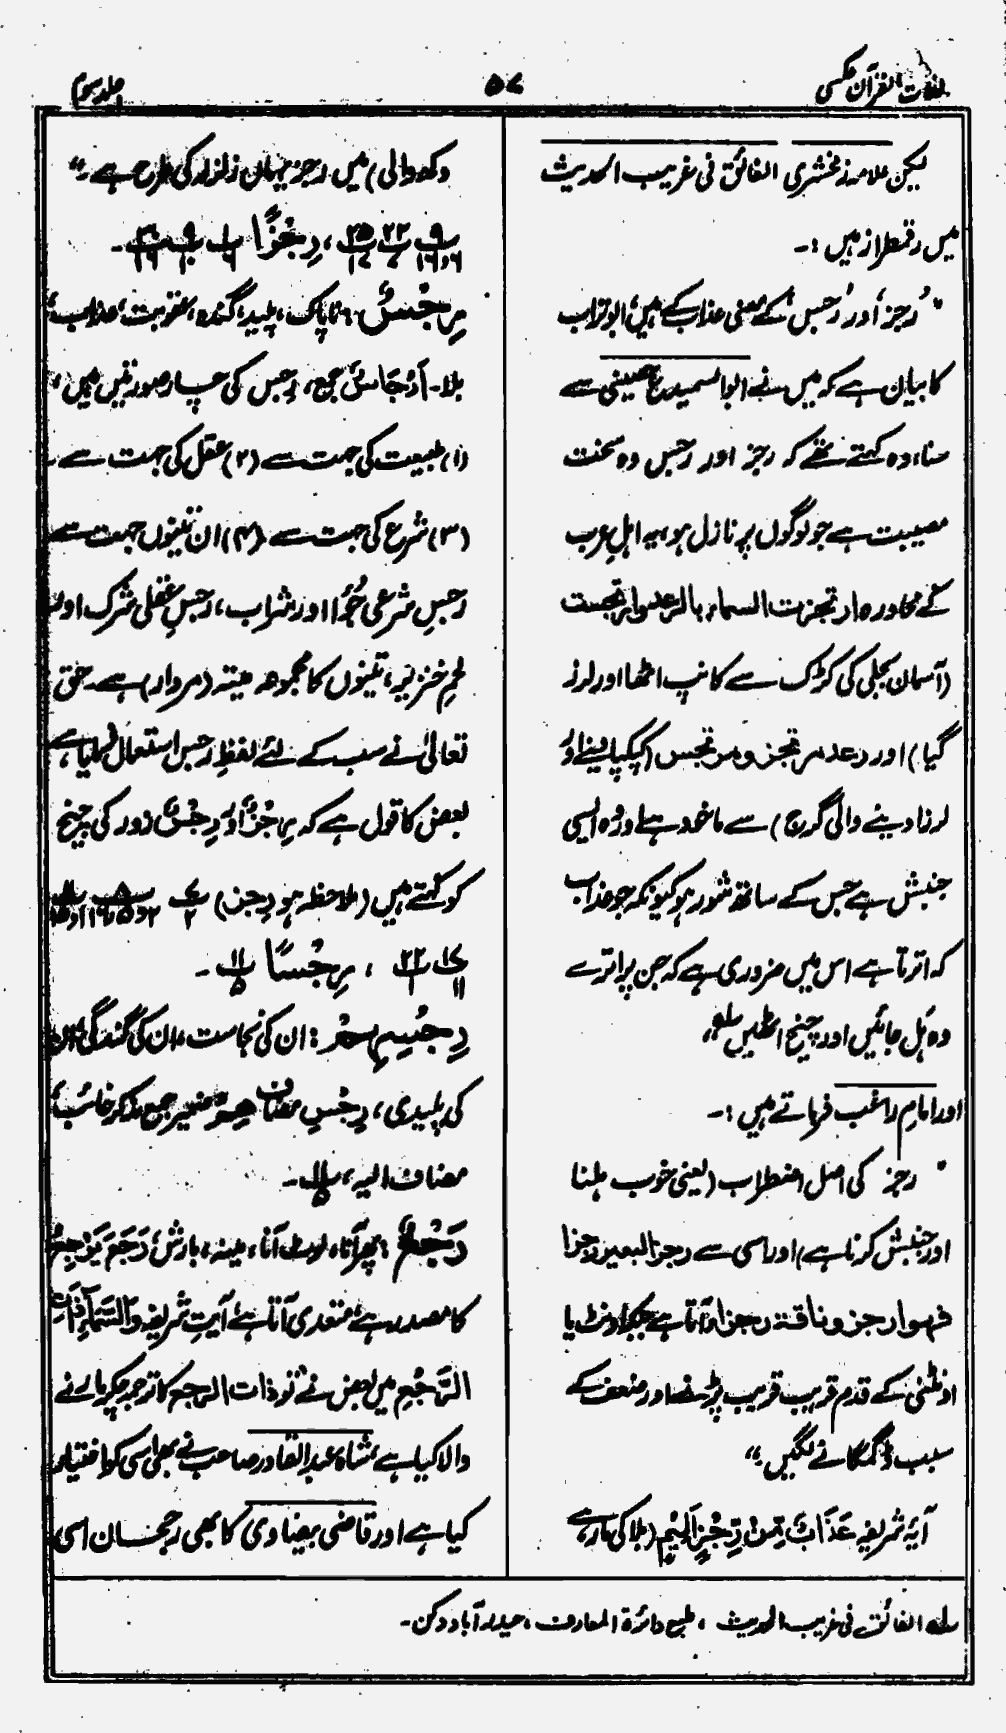 لغات القرآن عکسی
۵۷
جلد سوم
لیکن علامہ زمخشری الفائق فی غریب الحدیث
میں رقمطراز ہیں :۔
" رُجز، اور رُجس کے معنی عذاب کے ہیں، ابو تراب
کا بیان ہے کہ میں نے ابوالسمیدع حصینی سے
سنا، وہ کہتے تھے کہ رجز اور رجس وہ سخت
مصیبت ہے جو لوگوں پر نازل ہو، یہ اہل عرب
کے محاورہ ارتجزت السماء بالرعد وارتجست
(آسمان بجلی کی کڑک سے کانپ اٹھا اور لرز
گیا) اور رعد مرتجز ومرتجس (کپکپا دینے اور
لرزا دینے والی گرج) سے ماخوذ ہے اور وہ ایسی
جنبش ہے جس کے ساتھ شور ہو کیونکہ جو عذاب
کہ اترتا ہے اس میں ضروری ہے کہ جن پر اترے
وہ ہل جائیں اور چیخ اٹھیں" لہ
اور امام راغب فرماتے ہیں :۔
" رجز کی اصل اضطراب (یعنی خوب ہلنا
اور جنبش کرنا ہے) اور اسی سے رجز البعیر رجزا
فہو ارجز وناقۃ رجزاء آتا ہے جبکہ اونٹ یا
اونٹنی کے قدم قریب قریب پڑیں اور ضعف کے
سبب ڈگمگانے لگیں "
آیہ شریفہ عَذَابٌ مِّنْ رِّجْزٍ اَلِیْمٌ (بلا کی مار ہے
دکھ والی) میں رجز یہاں زلزلہ کی طرح ہے "
پ۹ ۶و۱۶ پ۲۲ ۷ پ۲۵ ۱۷، رِجْزًا پ۱ ۶ پ۹
رِجْسٌ ناپاک، پلید، گندہ، عقوبت، عذاب،
بلا۔ اَرْجَاسٌ جمع، رجس کی چار صورتیں ہیں،
(۱) طبیعت کی جہت سے (۲) عقل کی جہت سے
(۳) شرع کی جہت سے (۴) ان تینوں جہت سے
رجسِ شرعی جُوا اور شراب، رجسِ عقلی شرک اور
لحمِ خنزیر، تینوں کا مجموعہ میتہ (مردار) ہے۔ حق
تعالیٰ نے سب کے لئے لفظِ رجس استعمال فرمایا ہے،
بعض کا قول ہے کہ رِجْزٌ اور رِجْسٌ زور کی چیخ
کو کہتے ہیں (ملاحظہ ہو رجز) پ۷ ۲
پ۱۷ ۱۱ پ۲۲ ۱، رِجْسًا پ۱۱ ۵۔
رِجْسِهِمْ : ان کی نجاست، ان کی گندگی، ان
کی پلیدی، رِجْسِ مضاف ھِمْ ضمیر جمع مذکر غائب،
مضاف الیہ، پ۱۱ ۵۔
رَجْعٌ : پھر آنا، لوٹ آنا، مینہ، بارش، رَجَعَ یَرْجِعُ
کا مصدر ہے، متعدی آتا ہے، آیتِ شریفہ وَالسَّمَآءِ ذَاتِ
الرَّجْعِ میں بعض نے تو ذات الرجع کا ترجمہ چکر مارنے
والا کیا ہے، شاہ عبدالقادر صاحب نے بھی اسی کو اختیار
کیا ہے اور قاضی بیضاوی کا بھی رجحان اسی
لہ الفائق فی غریب الحدیث ، طبع دائرۃ المعارف ، حیدرآباد دکن۔